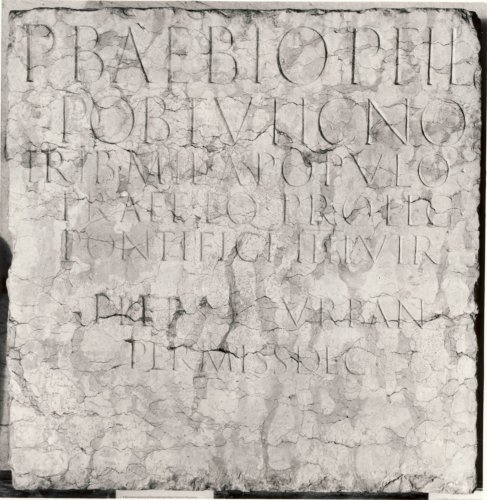 P BAEBIO P FIL
POB IVTICNO
TRIB MIL A POPVLO
PRAEFECTO PRO LEG
PONTIFICI VIR
VRBAN
PERMISS DEC